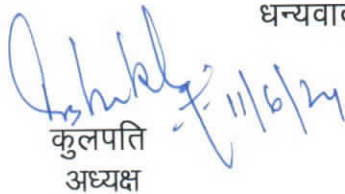 धन्यवाद
11/6/24
कुलपति
अध्यक्ष